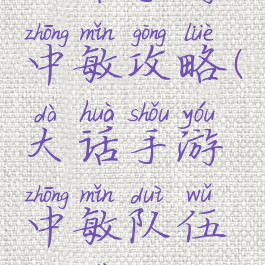 zhōng mǐn gōng lüè
中敏攻略(
dà huà shǒu yóu
大话手游
zhōng mǐn duì wǔ
中敏队伍